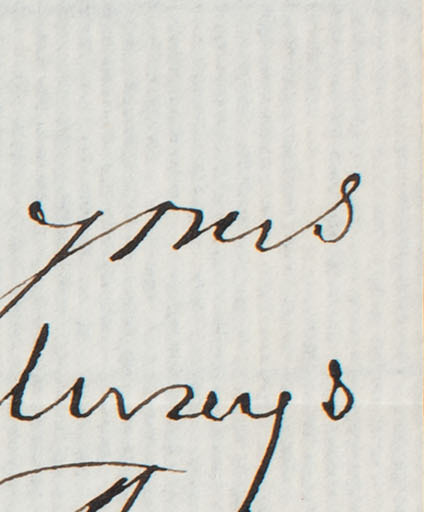 yours
always